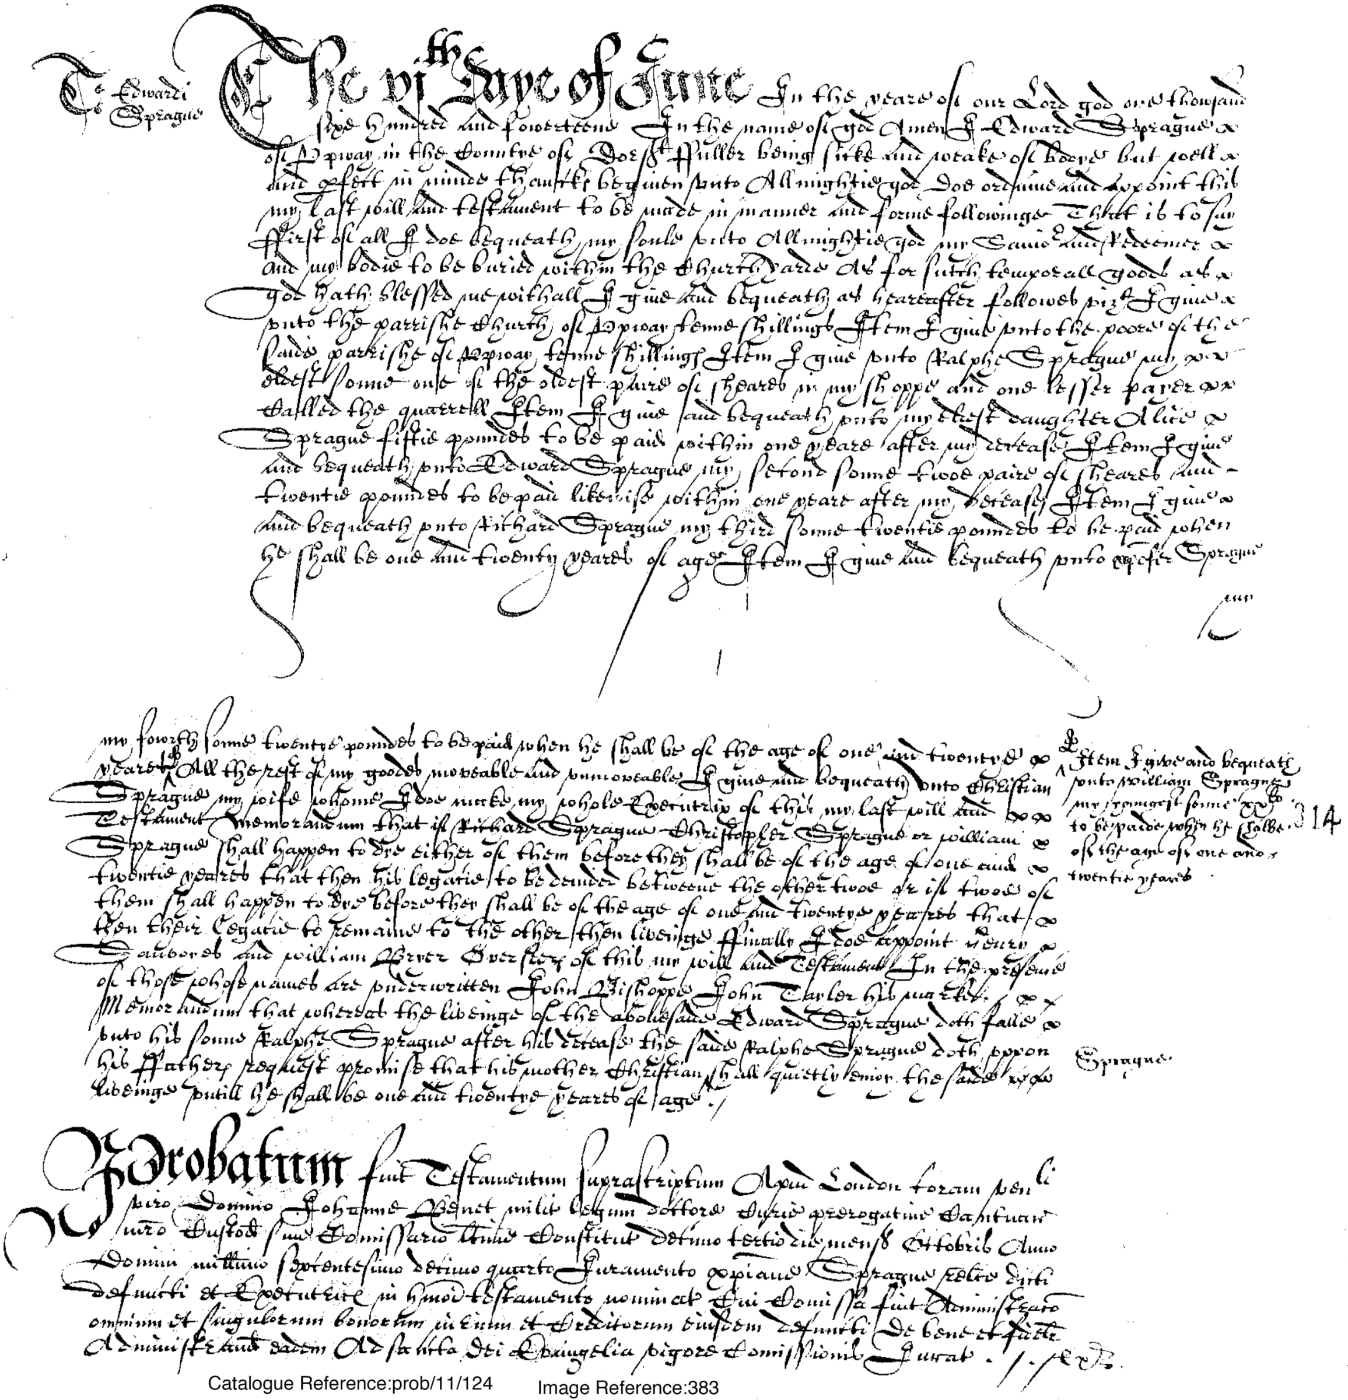 T Edwardi
Sprague
The vjth daye of June In the yeare of our Lord god one thousand
sixe hundred and fowerteene In the name of god Amen I Edward Sprague
of Vpway in the Countye of Dorst ffuller being sicke and weake of bodye but well
and pfect in minde thanckes be given vnto Allmightie god doe ordaine and appoint this
my last will and testament to be made in manner and forme followinge That is to say
ffirst of all I doe bequeath my soule vnto Allmightie god my Savior and Redeemer
and my bodie to be buried within the Churchyarde As for sutch temporall goods as
god hath blessed me withall I give and bequeath as heareafter followes vizt I give
vnto the parrishe Church of Vpway tenne shillings Item I give vnto the poore of the
saide parrishe of Vpway tenne shillings Item I give vnto Ralphe Sprague my
eldest sonne one of the oldest paire of sheares in my shoppe and one lesser payer
Called the quarrell Item I give and bequeath vnto my eldest daughter Alice
Sprague fiftie poundes to be paid within one yeare after my decease Item I give
and bequeath vnto Edward Sprague my second sonne twoe paire of sheares and
twentie poundes to be paid likewise within one yeare after my decease Item I give
and bequeath vnto Richard Sprague my third sonne twentie poundes to be paid when
he shall be one and twenty yeares of age Item I give and bequeath vnto xpofer Sprague
my
my fowrth sonne twentye poundes to be paid when he shall be of the age of one and twentye
yeares All the rest of my goodes moveable and vnmoveable I give and bequeath vnto Christian
Sprague my wife whome I doe make my whole Executrix of this my last will and
Testament Memorandum that if Richard Sprague Christopher Sprague or william
Sprague shall happen to dye either of them before they shall be of the age of one and
twentie yeares that then his legacie to be devided betweene the other twoe or if twoe of
them shall happen to dye before they shall be of the age of one and twentye yeares that
then their legacie to remaine to the other then liveinge ffinally I doe appoint Henry
Samwayes and william Bryer Overseers of this my will and Testament In the presence
of those whose names are vnderwritten John Bishoppe John Tayler his marke
Memorandum that whereas the liveinge of the abovesaide Edward Sprague doth falle
vnto his sonne Ralphe Sprague after his decease the saide Ralphe Sprague doth vppon
his ffathers request promise that his mother Christian shall quietly enioy the saide
liveinge vntill he shall be one and twentye yeares of age
Item I give and bequeath
vnto william Sprague
my youngest sonne xxli
to be paide when he shalbe
of the age of one and
twentie yeares
314
Sprague
Probatum fuit Testamentum suprascriptum Apud London coram venli
viro Domino Johanne Benet milit legum doctore Curie prerogative Cantuar
mro Custod sive Comissario ltime Constitut decimo tertio die mens Octobris Anno
Domini millimo sexcentesimo decimo quarto Juramento xpiane Sprague relce dicti
defuncti et Executric in hmoi testamento nominat Cui Comissa fuit Administratio
omnium et singulorum bonorum iurium et Creditorum eiusdem defuncti De bene et fidelr
Administrand eadem Ad sancta dei Evangelia vigore Comissionis Jurat
Catalogue Reference:prob/11/124 Image Reference:383